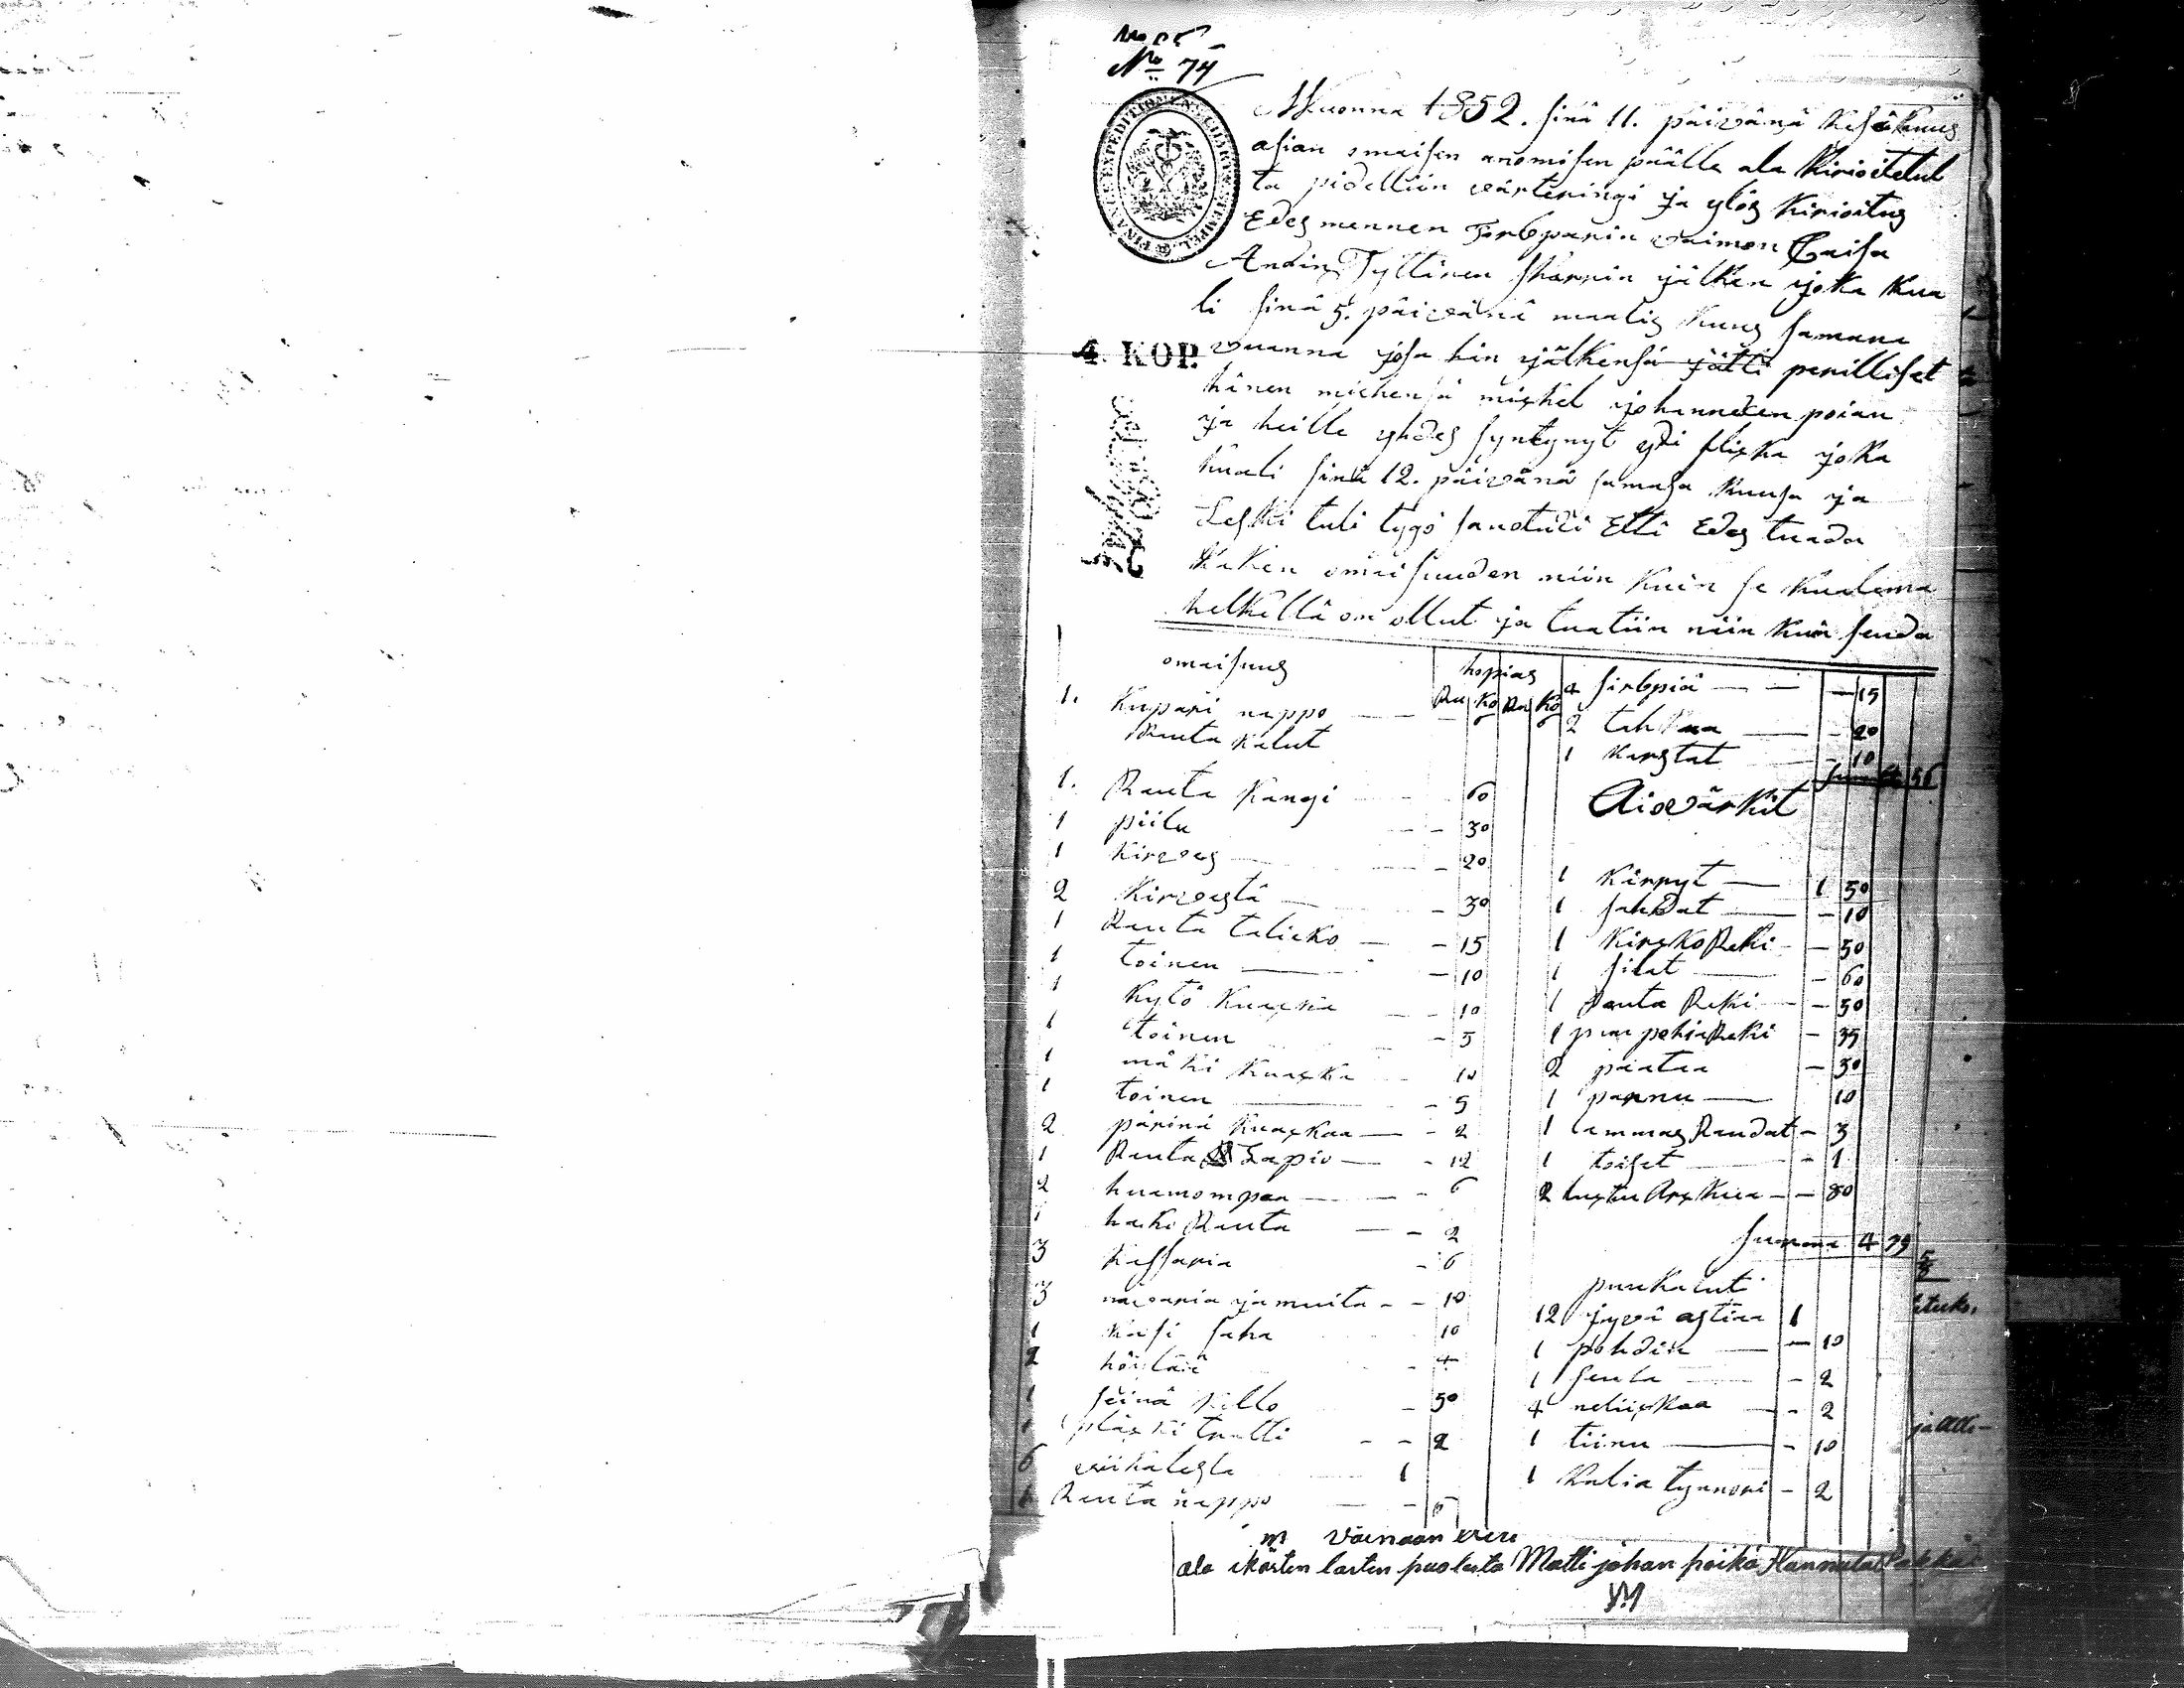 No 74
Wuonna 1852. sinä 11. päivänä Kesäkuus
asian omaisen anomisen päälle ala Kirioitetul
ta pidettiin värteringi ja ylös Kirioitus
Edes mennen Torpparin vaimon Caisa
Andin Tyttären jälken joka Kua
li sinä 5. päivänä maalis Kuus samana
vuanna josa hän jälkensä jätti perilliset
hänen miehensä mickel johanneksen poian
ja heille yhdes syntynyt yxi flicka joka
kuali sinä 12. päivänä samasa Kuusa ja
Leski tuli tygö sanotuxi Että Edes tuada
Kaiken omaisuuden niin Kuin se Kualema
hetkellä on ollut ja tuatiin niin Kuin seuda
4. KOP.
omaisuus hopias
Ru Ko Ru Ko
1. Kupari nappo — 6 6
Rauta Kalut
1. Rauta Kangi 60
1 piilu — 30
1 Kirves — 20
2 Kirvestä — 30
1 Rauta talicko — 15
1 toinen — 10
1 Kytö Kuacka — 10
1 toinen — 5
1 mäki Kuacka 10
1 toinen — 5
2 pärinä Kuackaa — 2
1 Rauta Lapio — 12
2 — 6
1 haki Rauta — 2
3 Kassaria — 6
3 navaria ja muita — 10
1 Käsi saha 10
2 höylää — 4
1 seinä Kello — 50
1 pläcki tratti — 2
6 viikatesta 1
1 Rauta nappo — 6
4 sirppiä — 15
2 tahkoa — 20
1 Karstat — 10
summa 56
Aisvärkit
1 Kärryt — 1 50
1 suhdat — 10
1 Kircko Reki — 50
1 silat — 60
1 Rauta Reki — 50
1 puu pohia Reki — 35
2 paataa — 30
1 pannu — 10
1 lammas Raudat — 3
1 toiset — 1
2 luctu Arckua — 80
summa 4 79
puukalut
12 jyvä astiaa 1
1 pohdin — 10
1 seula — 2
4 nelickaa — 2
1 tiinu — 10
1 Kalia tynnöri — 2
Vainaan
ala ikäisten lasten puolesta Matti johan poika Hannula